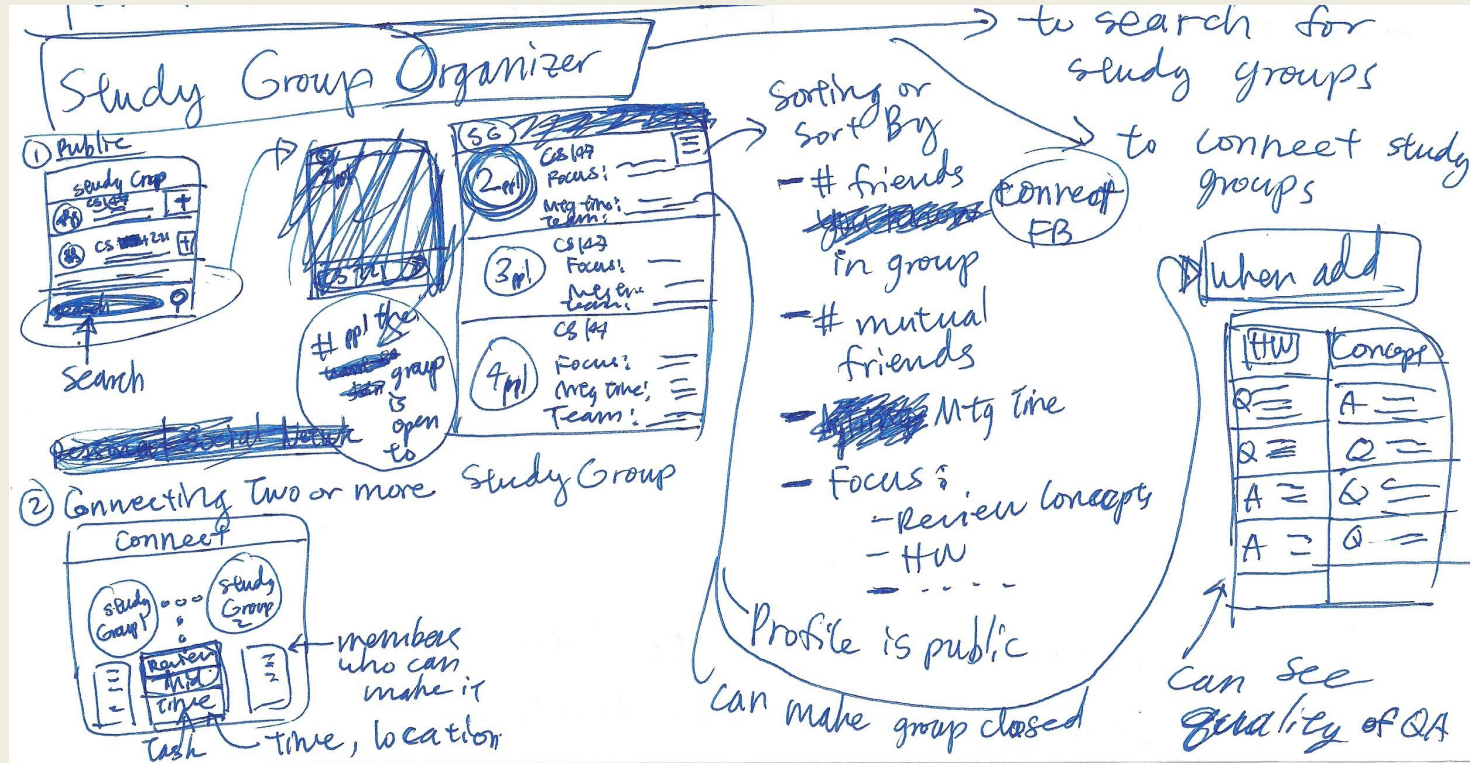 Study Group Organizer
to search for
study groups
to connect study
groups
① Public
Study Grop
CS147
+
CS 221
+
Search
Search
# ppl the
group
is
open
to
SG
2 ppl
CS147
Focus:
Mtg time:
Team:
3 ppl
CS147
Focus:
Mtg time
Team:
4 ppl
CS147
Focus:
Mtg time:
Team:
Study Group
Sorting or
Sort By
- # friends
in group
Connect
FB
- # mutual
friends
- Mtg time
- Focus:
- Review Concepts
- HW
- . . . .
Profile is public
can make group closed
when add
HW Concept
Q A
Q Q
A Q
A Q
can see
quality of QA
Personal Social Network
② Connecting Two or more
Connect
Study
Group 1
Study
Group
2
Review
Mid
Time
members
who can
make it
Task
Time, location